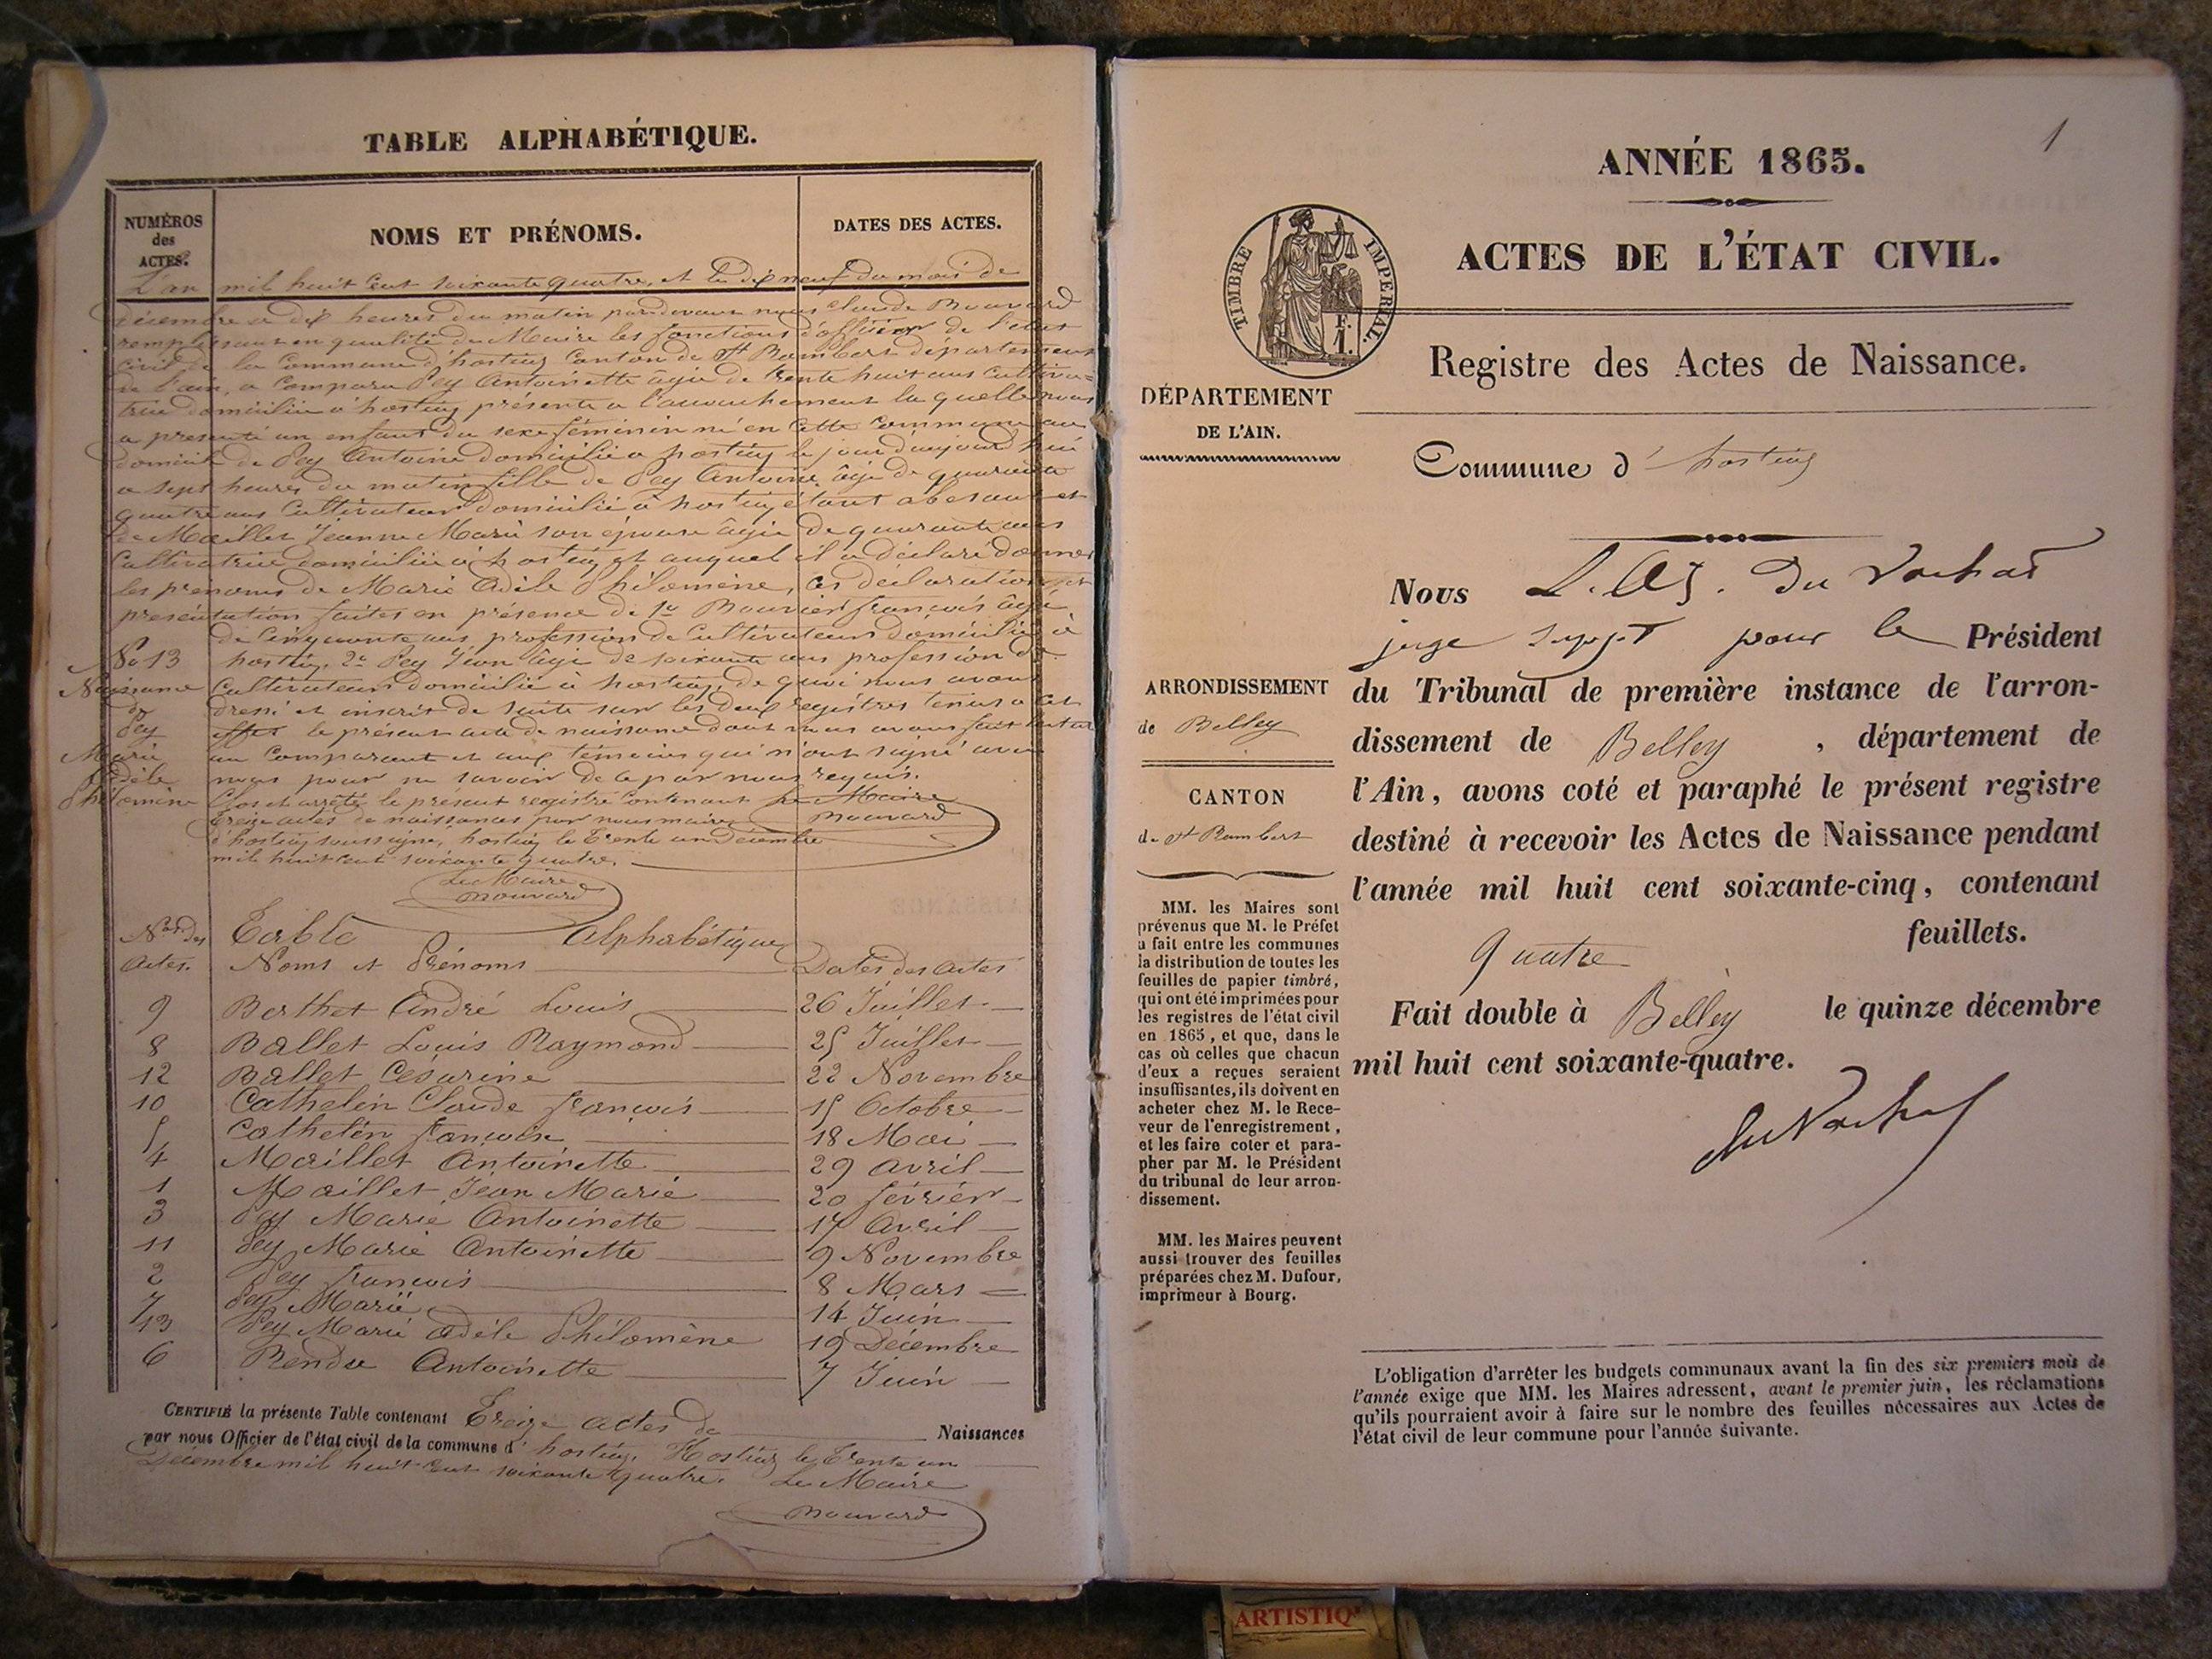 TABLE ALPHABÉTIQUE.
NUMÉROS des ACTES.
NOMS ET PRÉNOMS.
DATES DES ACTES.
L'an mil huit cent soixante quatre, et le dix neuf du mois de
décembre à dix heures du matin pardevant nous claude Bouvard
remplissant en qualité de Maire les fonctions d'officier de l'état
civil de la Commune d'hostiaz Canton de St Rambert département
de l'ain, a Comparu Pey Antoinette âgée de trente huit ans Cultiva=
trice domiciliée à hostiaz présente a l'accouchement la quelle nous
a présenté un enfant du sexe féminin né en Cette Commune au
domicile de Pey Antoine domicilié a hostiaz le jour d'aujourd'hui
a sept heures du matin fille de Pey Antoine âgé de quarante
quatre ans Cultivateur domicilié à hostiaz étant absent et
de Maillet Jeanne Marie son épouse âgée de quarante ans
Cultivatrice domiciliée à hostiaz et auquel il a déclaré donner
les prénoms de Marie Adèle Philomène, ces déclaration et
présentation faites en présence de 1o Bouvier françois âgé
de Cinquante ans profession de Cultivateur domicilié à
No 13
hostiaz, 2o Pey Jean âgé de soixante ans profession de
Naissance
Cultivateur domicilié à hostiaz, de quoi nous avons
de
dressé et inscrit de suite sur les deux registres tenus a cet
Pey
effet le présent acte de naissance dont nous avons fait lecture
Marie
au Comparant et aux témoins qui n'ont signé avec
Adèle
nous pour ne savoir de ce par nous requis.
Philomène
Clos et arrêté le présent registre Contenant
Le Maire
treize actes de naissances par nous maire
Bouvard
d'hostiaz soussigné, hostiaz le trente un Décembre
mil huit cent soixante quatre.
Le Maire
Bouvard
Nos des Actes.
Table Alphabétique
Noms et Prénoms
Dates des Actes
9 Berthet André Louis 26 Juillet
8 Ballet Louis Raymond 25 Juillet
12 Ballet Césarine 22 Novembre
10 Cathelin Claude françois 15 Octobre
5 Cathelin françoise 18 Mai
4 Maillet Antoinette 29 Avril
1 Maillet Jean Marie 20 février
3 Pey Marie Antoinette 17 Avril
11 Pey Marie Antoinette 9 Novembre
2 Pey françois 8 Mars
7 Pey Marie 14 Juin
13 Pey Marie Adèle Philomène 19 Décembre
6 Rendu Antoinette 7 Juin
CERTIFIÉ la présente Table contenant Treize actes de Naissances
par nous Officier de l'état civil de la commune d'hostiaz, Hostiaz le Trente un
Décembre mil huit cent soixante quatre. Le Maire
Bouvard
1
ANNÉE 1865.
TIMBRE IMPÉRIAL.
F.
1.
ACTES DE L'ÉTAT CIVIL.
Registre des Actes de Naissance.
DÉPARTEMENT
DE L'AIN.
Commune d'hostiaz
ARRONDISSEMENT
de Belley
CANTON
de St Rambert
MM. les Maires sont
prévenus que M. le Préfet
a fait entre les communes
la distribution de toutes les
feuilles de papier timbré,
qui ont été imprimées pour
les registres de l'état civil
en 1865, et que, dans le
cas où celles que chacun
d'eux a reçues seraient
insuffisantes, ils doivent en
acheter chez M. le Rece-
veur de l'enregistrement,
et les faire coter et para-
pher par M. le Président
du tribunal de leur arron-
dissement.
MM. les Maires peuvent
aussi trouver des feuilles
préparées chez M. Dufour,
imprimeur à Bourg.
Nous du Vachat
juge suppt pour le Président
du Tribunal de première instance de l'arron-
dissement de Belley, département de
l'Ain, avons coté et paraphé le présent registre
destiné à recevoir les Actes de Naissance pendant
l'année mil huit cent soixante-cinq, contenant
quatre feuillets.
Fait double à Belley le quinze décembre
mil huit cent soixante-quatre.
du Vachat
L'obligation d'arrêter les budgets communaux avant la fin des six premiers mois de
l'année exige que MM. les Maires adressent, avant le premier juin, les réclamations
qu'ils pourraient avoir à faire sur le nombre des feuilles nécessaires aux Actes de
l'état civil de leur commune pour l'année suivante.
ARTISTIQ